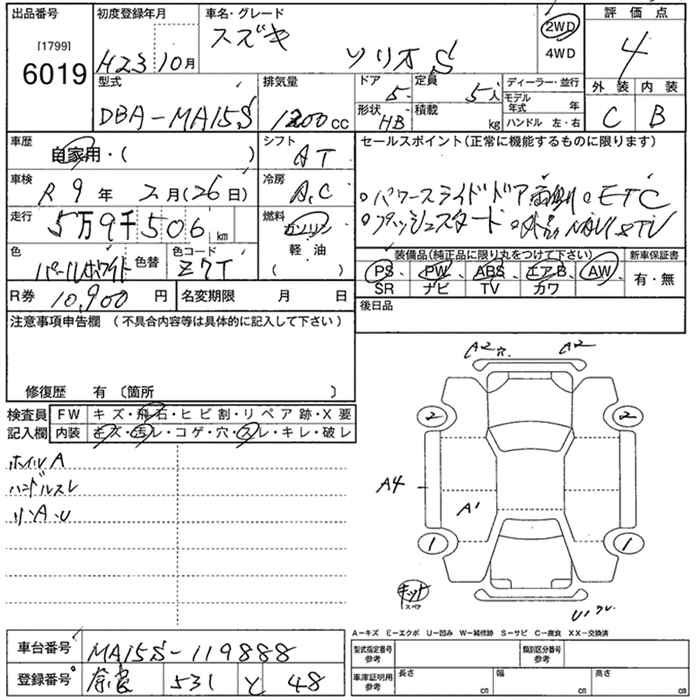 出品番号 初度登録年月 車名・グレード 評価点
[1799] スズキ 2WD
6019 H23 10月 ソリオS 4WD 4
型式 排気量 ドア 定員 ディーラー・並行 外装 内装
DBA-MA15S 1200cc 5 5人 モデル年式 年 C B
形状 HB 積載 kg ハンドル 左・右
車歴 シフト セールスポイント(正常に機能するものに限ります)
自家用・( ) AT
車検 R9年 2月(26日) 冷房 A.C パワースライドドア両側 ETC
走行 5万9千506km 燃料 ガソリン プッシュスタート NAVI&TV
色 色替 色コード 軽・油 装備品(純正品に限り丸をつけて下さい) 新車保証書
パールホワイト Z7T ( ) PS PW ABS エアB AW 有・無
SR ナビ TV カワ
R券 10,900円 名変期限 月 日 後日品
注意事項申告欄 (不具合内容等は具体的に記入して下さい)
修復歴 有 〔箇所 〕
検査員 FW キズ・飛石・ヒビ割・リペア跡・X要
記入欄 内装 キズ・汚レ・コゲ・穴・スレ・キレ・破レ
ホイルA
ハンドルスレ
リンA.U
A2穴. A2
2 2
A4 A1
1 1
キット
スペア
A-キズ E-エクボ U-凹み W-補修跡 S-サビ C-腐食 XX-交換済
車台番号 MA15S-119888 型式指定番号 参考 類別区分番号 参考
登録番号 奈良 531 と 48 車庫証明用 参考 長さ cm 幅 cm 高さ cm